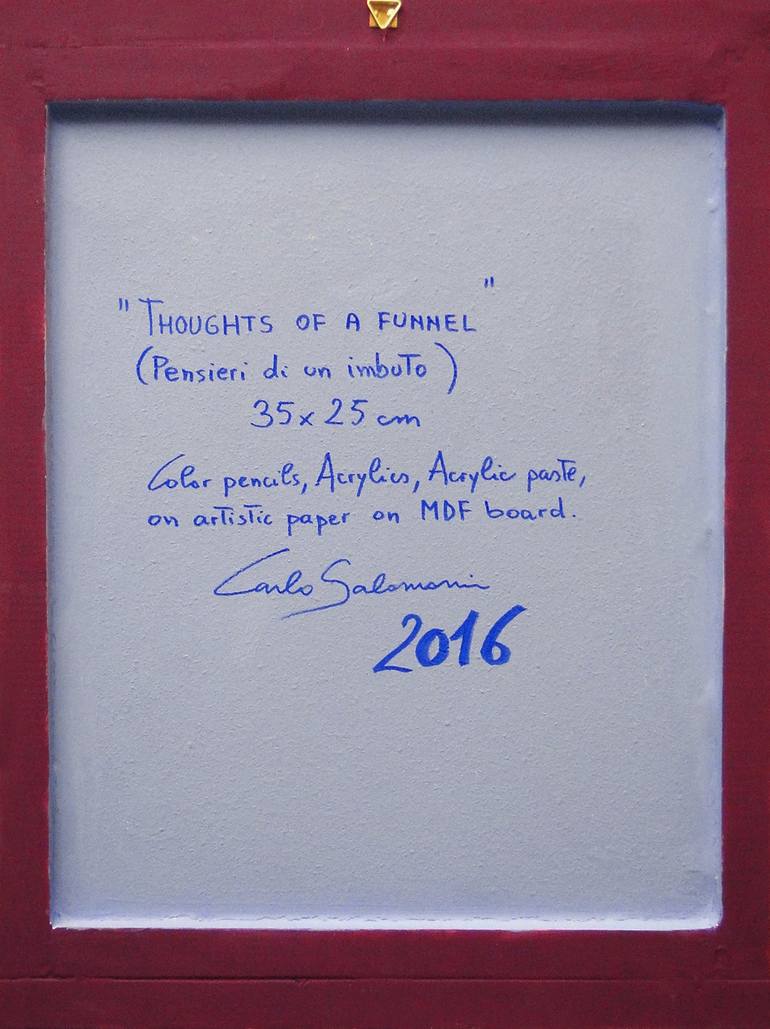 "THOUGHTS OF A FUNNEL"
(Pensieri di un imbuto)
35x25 cm
Color pencils, Acrylics, Acrylic paste,
on artistic paper on MDF board.
Carlo Salomoni
2016